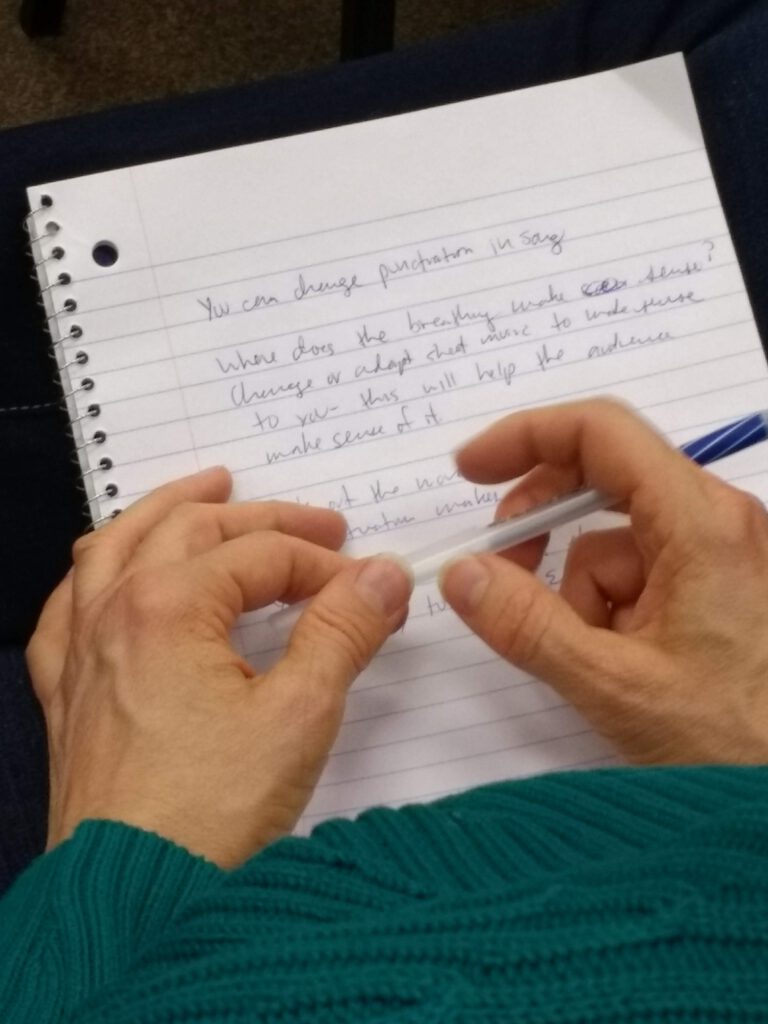 You can change punctuation in song
Where does the breathing make sense?
Change or adapt sheet music to make sense
to you - this will help the audience
make sense of it.
out the
makes